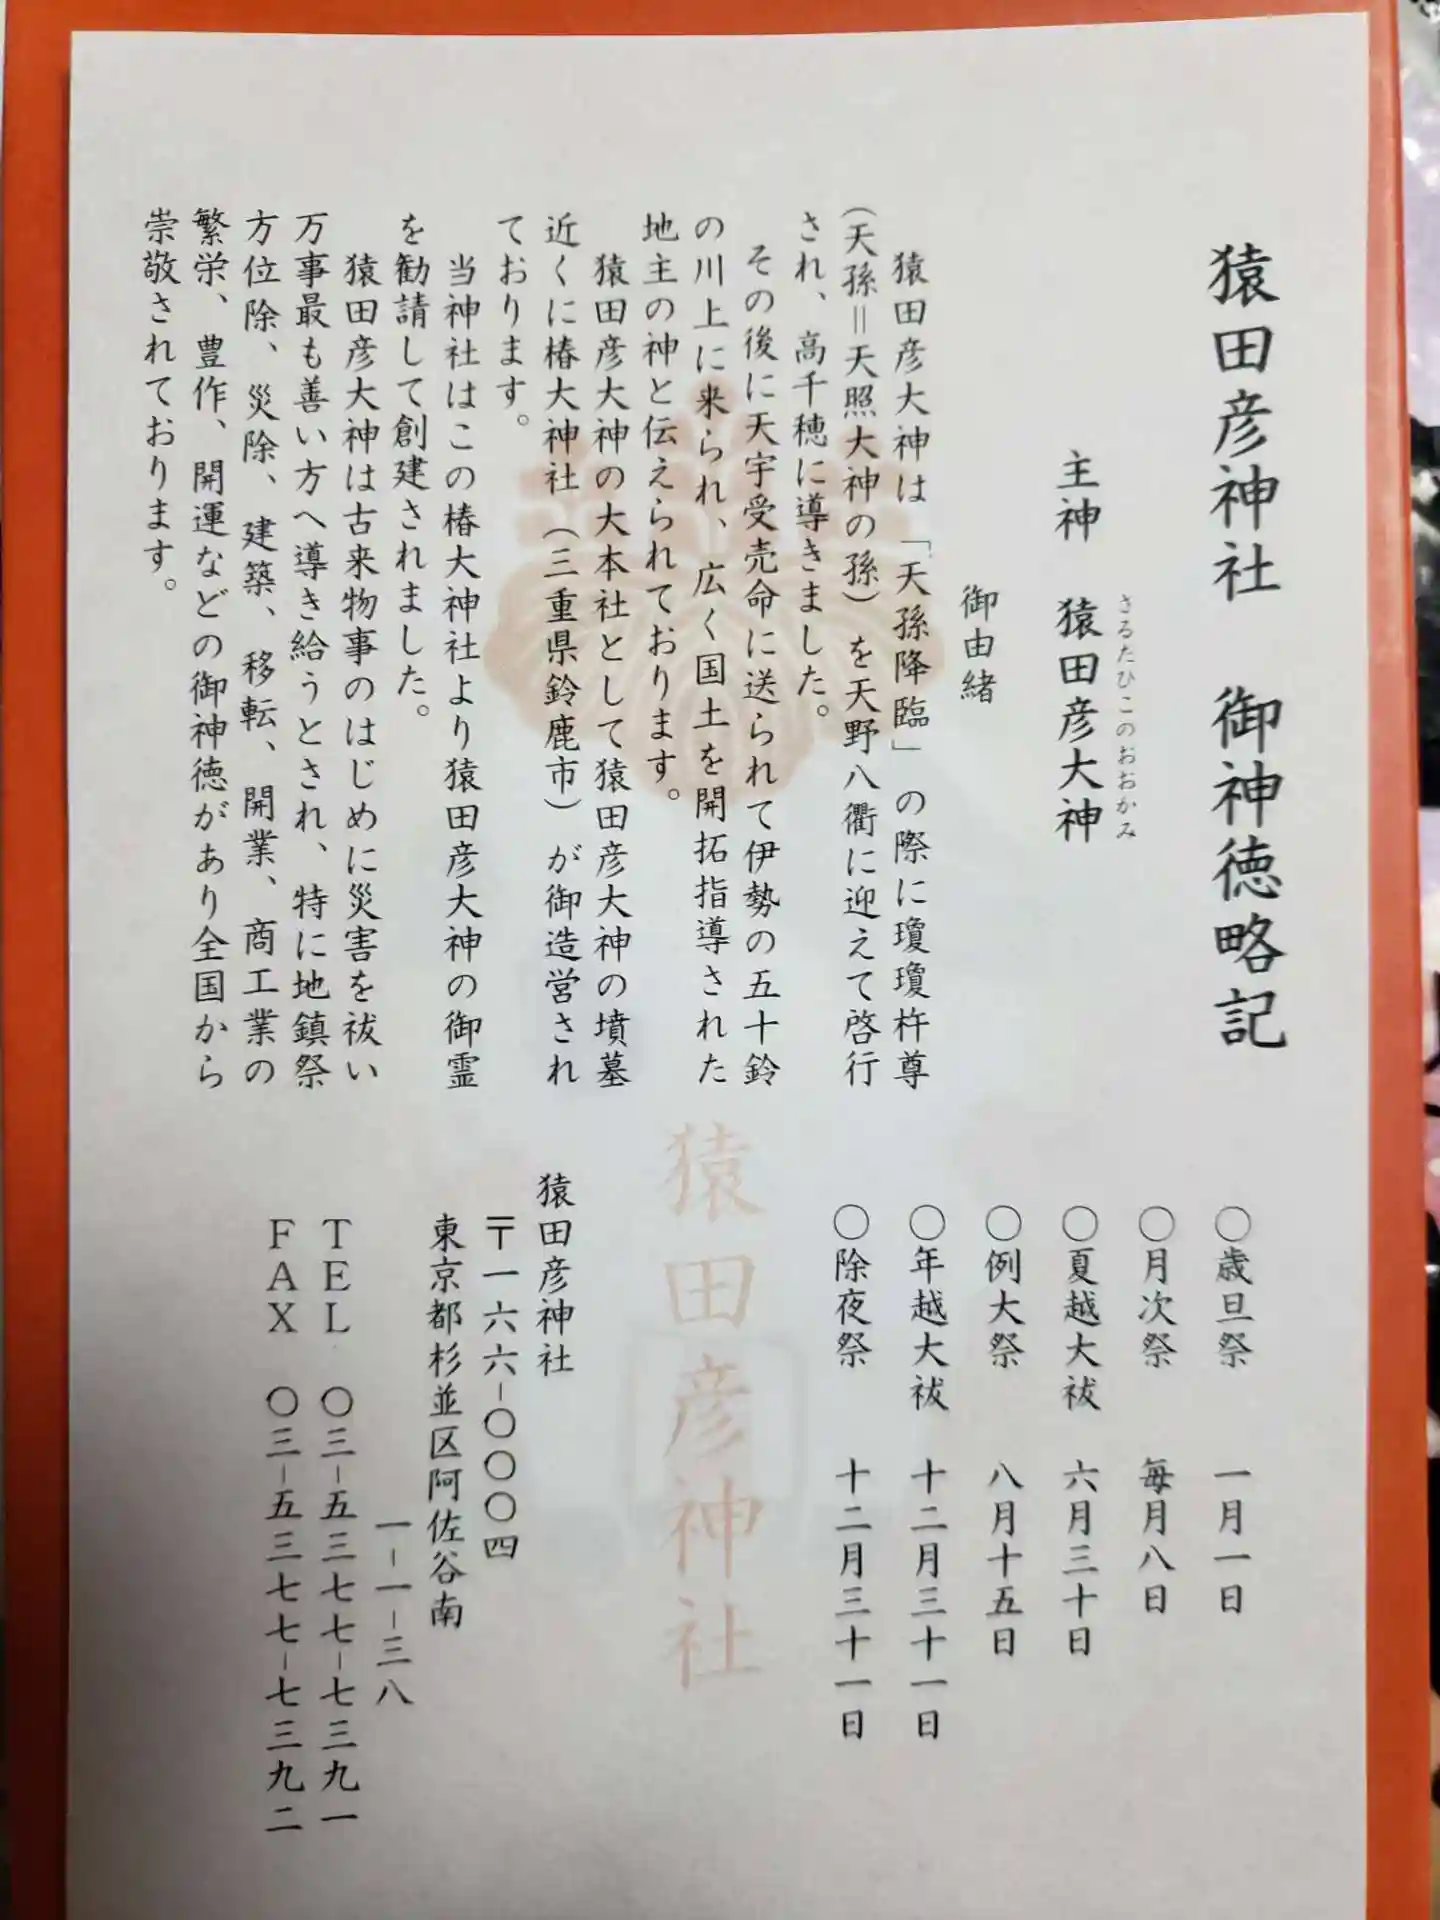 猿田彦神社 御神徳略記
さるたひこのおおかみ
主神 猿田彦大神
御由緒
猿田彦大神は「天孫降臨」の際に瓊瓊杵尊
(天孫=天照大神の孫)を天野八衢に迎えて啓行
され、高千穂に導きました。
その後に天宇受売命に送られて伊勢の五十鈴
の川上に来られ、広く国土を開拓指導された
地主の神と伝えられております。
猿田彦大神の大本社として猿田彦大神の墳墓
近くに椿大神社(三重県鈴鹿市)が御造営され
ております。
当神社はこの椿大神社より猿田彦大神の御霊
を勧請して創建されました。
猿田彦大神は古来物事のはじめに災害を祓い
万事最も善い方へ導き給うとされ、特に地鎮祭
方位除、災除、建築、移転、開業、商工業の
繁栄、豊作、開運などの御神徳があり全国から
崇敬されております。
〇歳旦祭 一月一日
〇月次祭 毎月八日
〇夏越大祓 六月三十日
〇例大祭 八月十五日
〇年越大祓 十二月三十一日
〇除夜祭 十二月三十一日
猿田彦神社
猿田彦神社
〒一六六-〇〇〇四
東京都杉並区阿佐谷南
一-一-三八
TEL 〇三-五三七七-七三九一
FAX 〇三-五三七七-七三九二